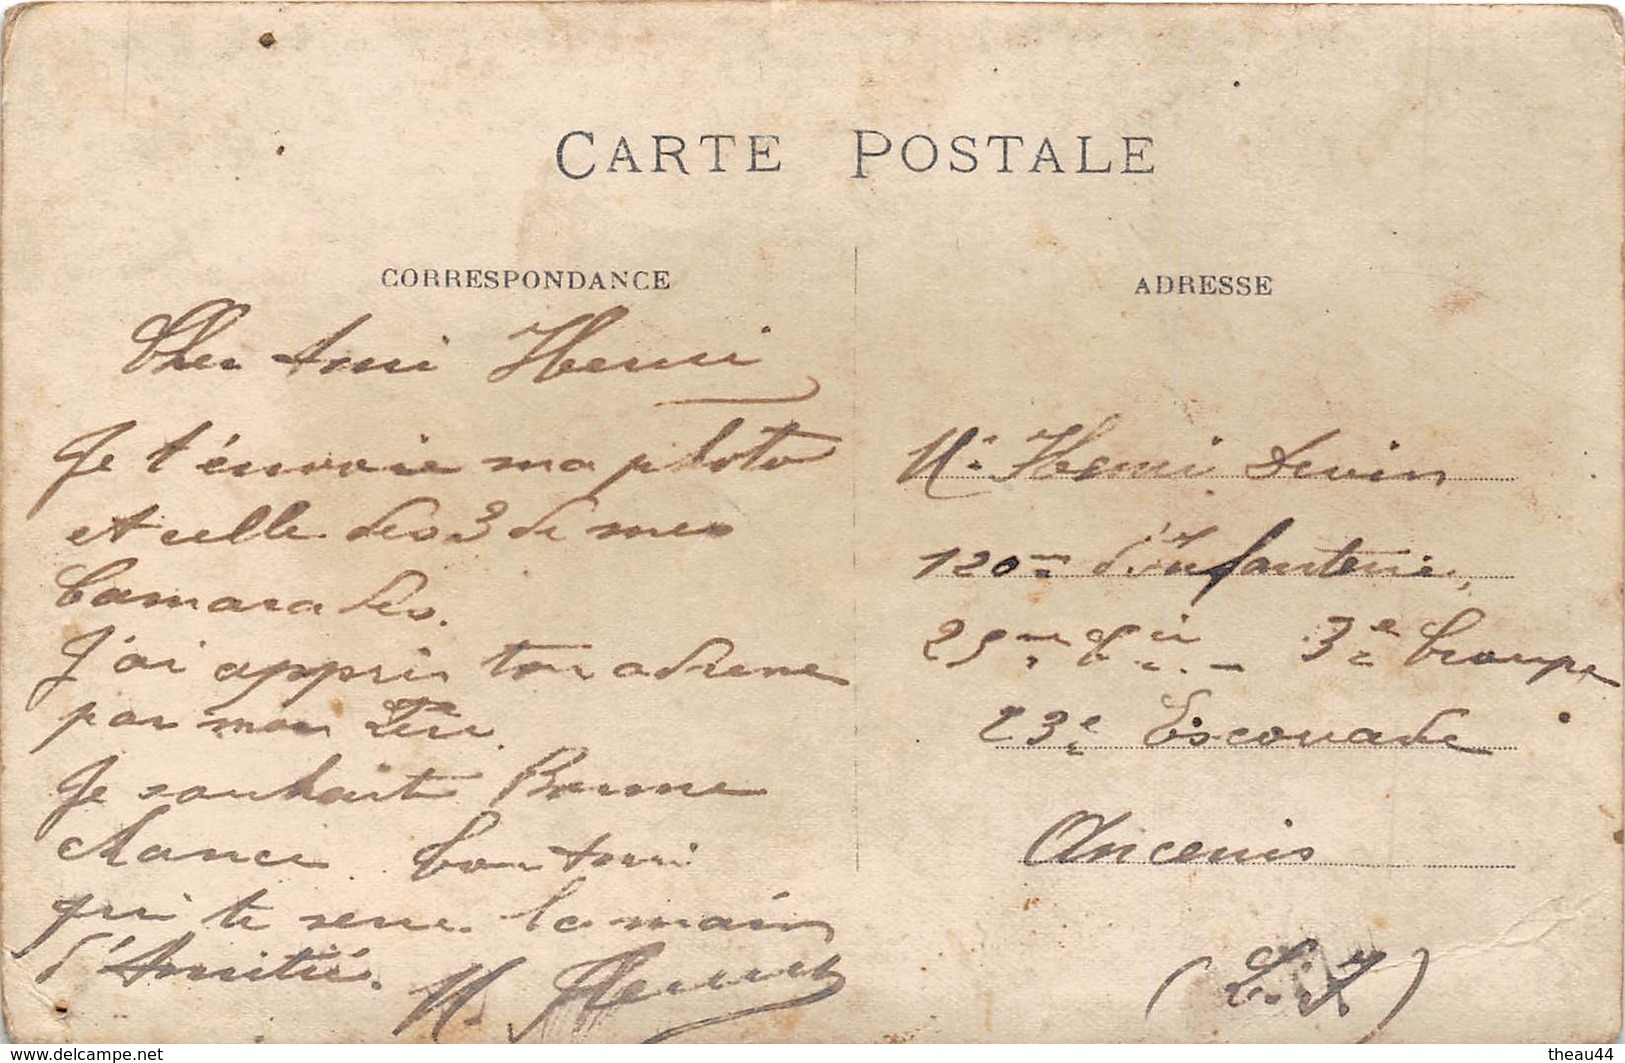 CARTE POSTALE
CORRESPONDANCE
Cher Ami Henri
Je t'envoie ma photo
et celle des 3 de mes
Camarades.
J'ai appris ton adresse
par mon Père.
Je souhaite Bonne
Chance ton Ami
qui te serre la main
d'Amitié.
H.
ADRESSE
Mr Henri
120me d'Infanterie,
25me Cie - 3e troupe
23e Escouade
Ancenis
(L. I.)
www.delcampe.net
theau44